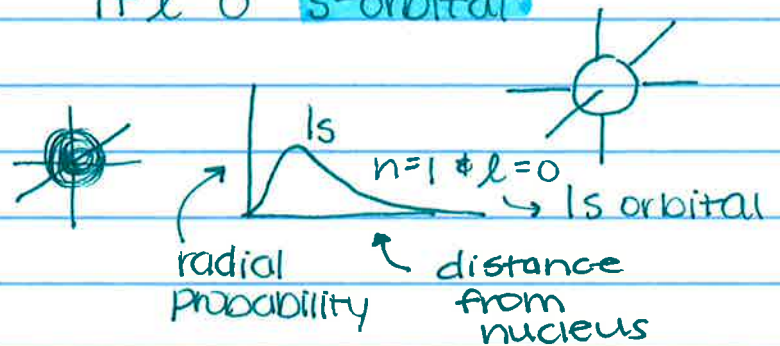 s-orbital
1s
n=1 & l=0
→ 1s orbital
radial
probability
distance
from
nucleus